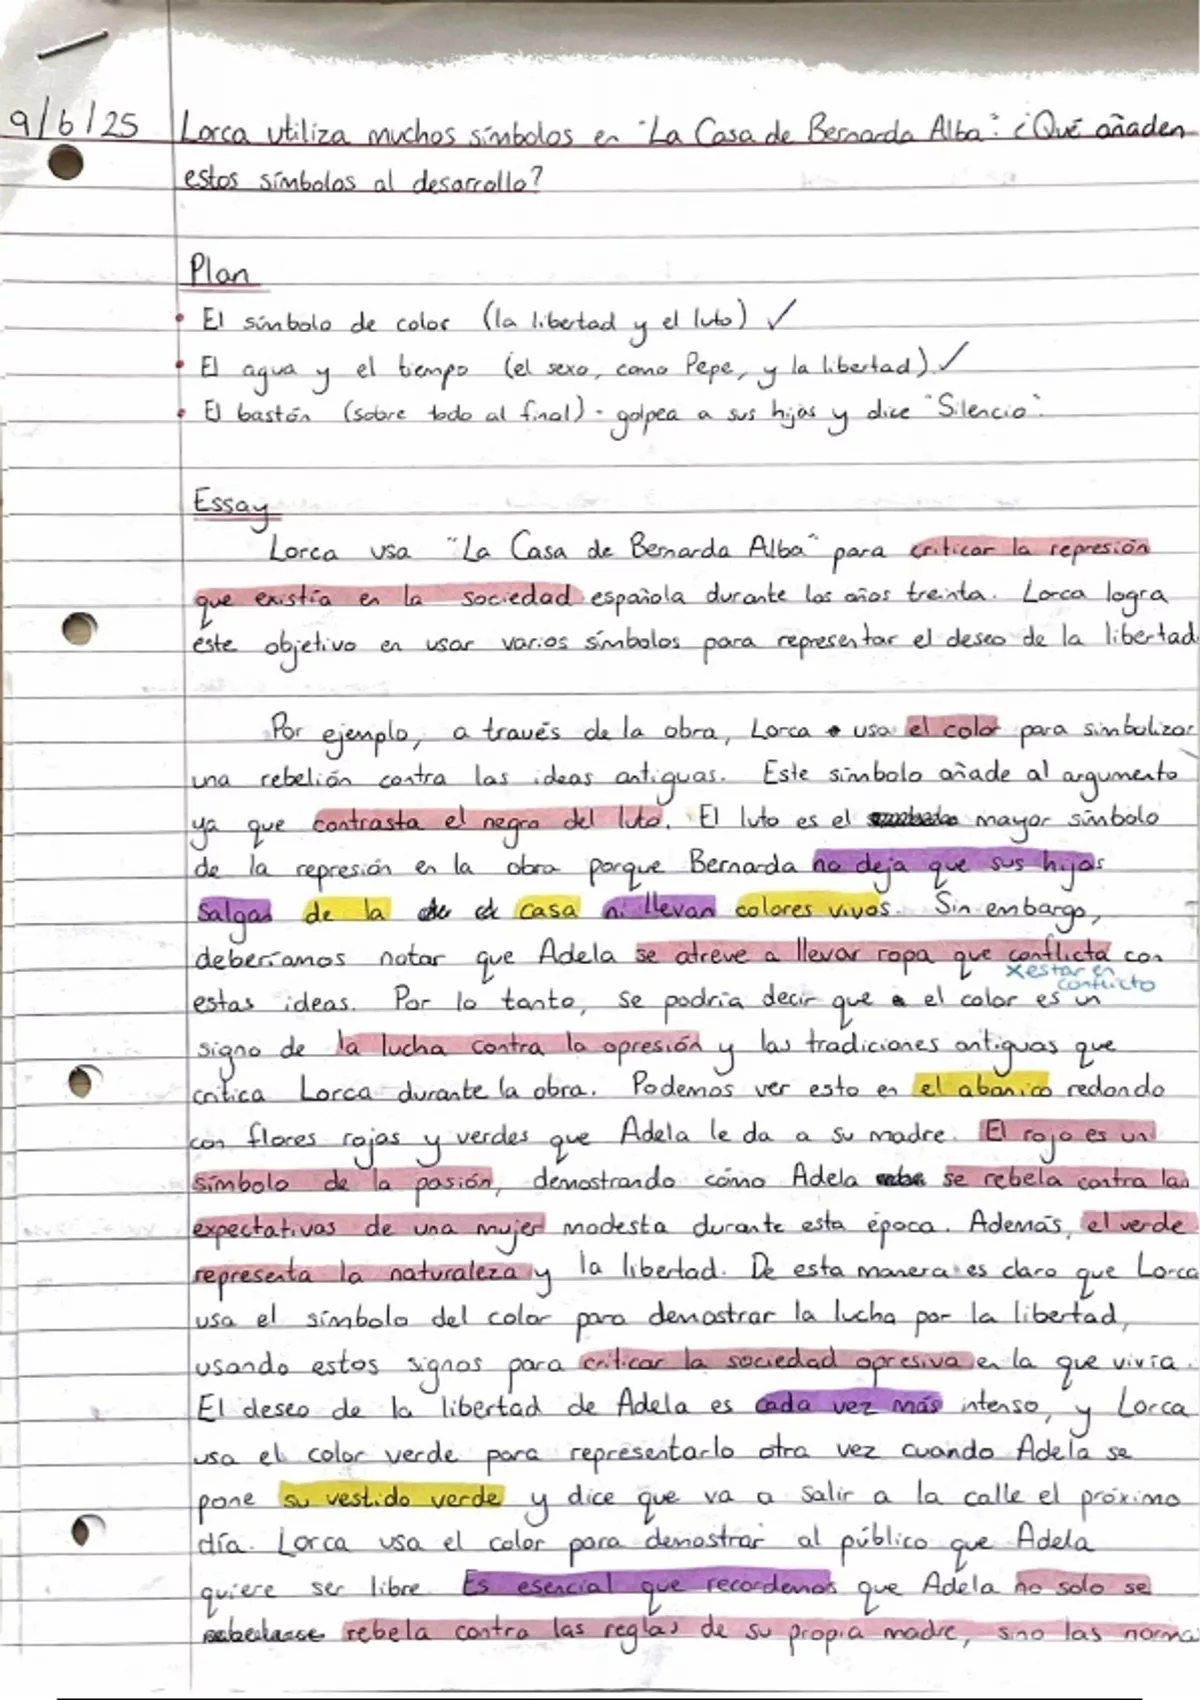 9/6/25 Lorca utiliza muchos símbolos en "La Casa de Bernarda Alba": ¿Qué añaden
estos símbolos al desarrollo?
Plan
• El símbolo de color (la libertad y el luto) ✓
• El agua y el tiempo (el sexo, como Pepe, y la libertad). ✓
• El bastón (sobre todo al final) - golpea a sus hijas y dice "Silencio".
Essay
Lorca usa "La Casa de Bernarda Alba" para criticar la represión
que existía en la sociedad española durante los años treinta. Lorca logra
este objetivo en usar varios símbolos para representar el deseo de la libertad
Por ejemplo, a través de la obra, Lorca usa el color para simbolizar
una rebelión contra las ideas antiguas. Este símbolo añade al argumento
ya que contrasta el negro del luto. El luto es el mayor símbolo
de la represión en la obra porque Bernarda no deja que sus hijas
salgan de la casa ni llevan colores vivos. Sin embargo,
deberíamos notar que Adela se atreve a llevar ropa que conflicta con
x estar en
conflicto
estas ideas. Por lo tanto, se podría decir que el color es un
signo de la lucha contra la opresión y las tradiciones antiguas que
critica Lorca durante la obra. Podemos ver esto en el abanico redondo
con flores rojas y verdes que Adela le da a su madre. El rojo es un
símbolo de la pasión, demostrando cómo Adela se rebela contra las
expectativas de una mujer modesta durante esta época. Además, el verde
representa la naturaleza y la libertad. De esta manera es claro que Lorca
usa el símbolo del color para demostrar la lucha por la libertad,
usando estos signos para criticar la sociedad opresiva en la que vivía.
El deseo de la libertad de Adela es cada vez más intenso, y Lorca
usa el color verde para representarlo otra vez cuando Adela se
pone su vestido verde y dice que va a salir a la calle el próximo
día. Lorca usa el color para demostrar al público que Adela
quiere ser libre. Es esencial que recordemos que Adela no solo se
rebela contra las reglas de su propia madre, sino las norma